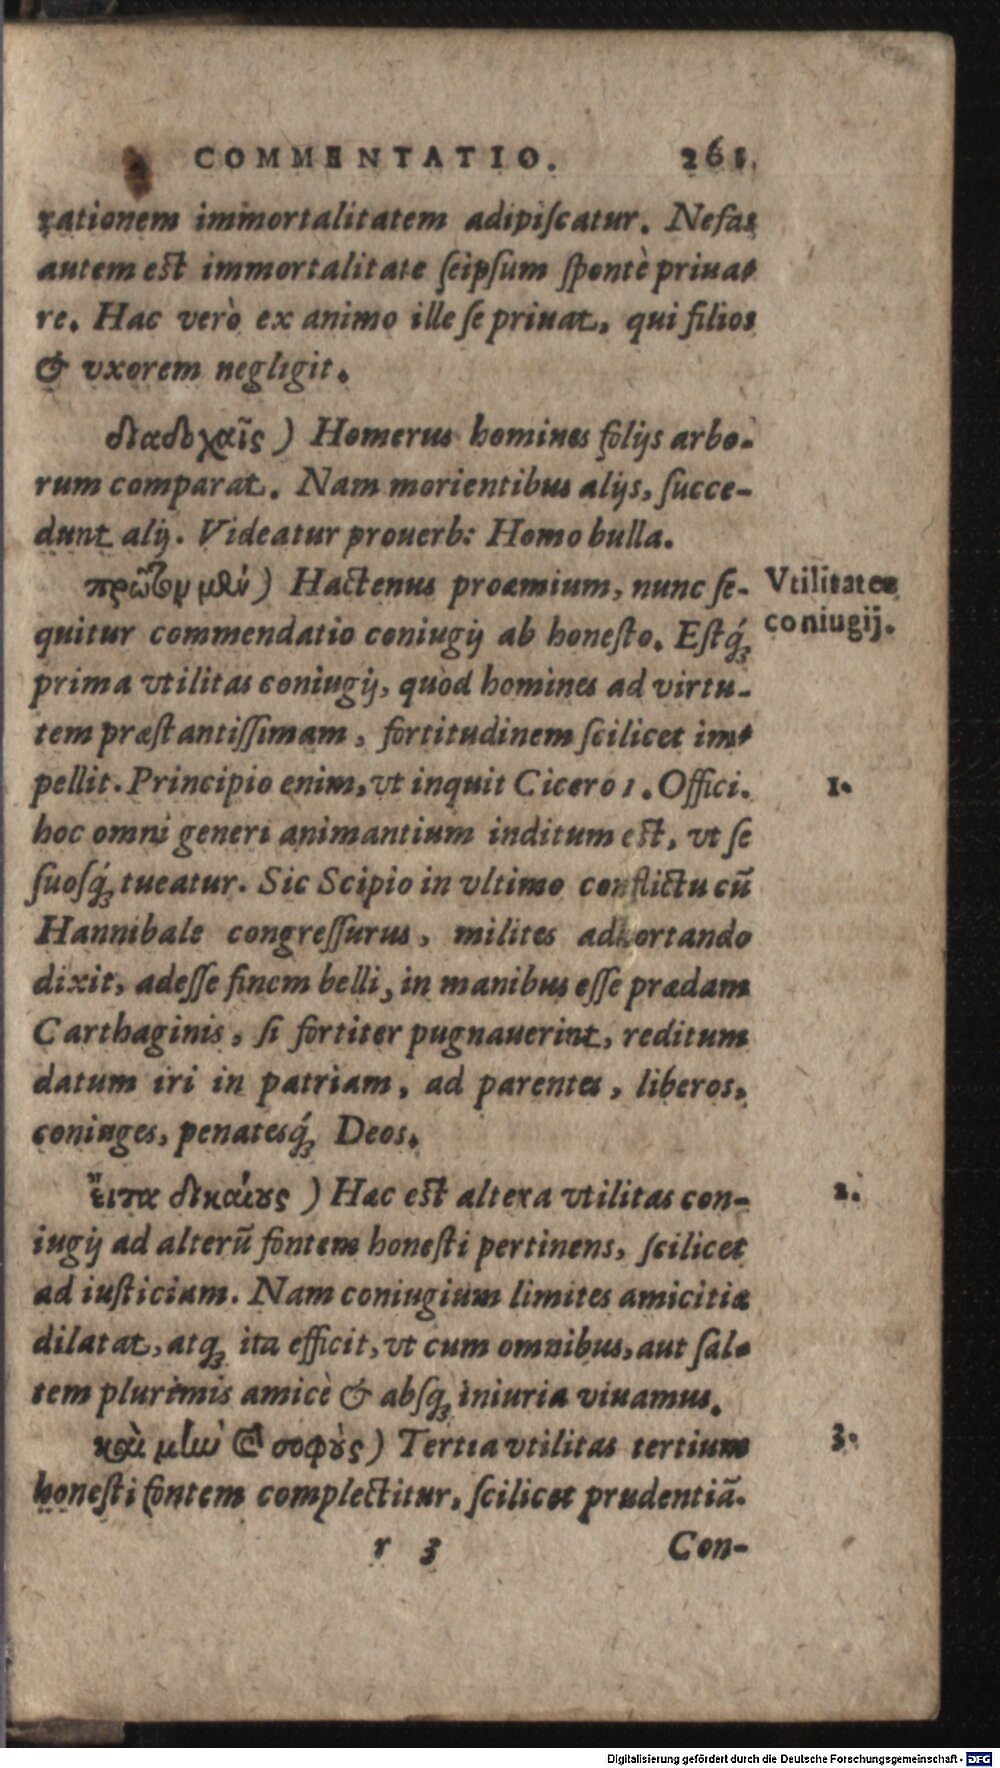 COMMENTATIO. 261.
rationem immortalitatem adipiſcatur. Nefas
autem est immortalitate ſeipſum ſpontè priua-
re. Hac verò ex animo ille ſe priuat, qui filios
& vxorem negligit.
διαδοχαῖς ) Homerus homines folijs arbo-
rum comparat. Nam morientibus alijs, ſucce-
dunt alij. Videatur prouerb: Homo bulla.
πρῶτον μὲν ) Hactenus proœmium, nunc ſe-
quitur commendatio coniugij ab honeſto. Eſtq́;
prima vtilitas coniugij, quòd homines ad virtu-
tem præſtantiſſimam, fortitudinem ſcilicet im-
pellit. Principio enim, vt inquit Cicero 1. Offici.
hoc omni generi animantium inditum est, vt ſe
ſuoſq́; tueatur. Sic Scipio in vltimo conflictu cũ
Hannibale congreſſurus, milites adhortando
dixit, adeſſe finem belli, in manibus eſſe prædam
Carthaginis, ſi fortiter pugnauerint, reditum
datum iri in patriam, ad parentes, liberos,
coniuges, penatesq́; Deos.
ἔιτα δικαίους ) Hac est altera vtilitas con-
iugij ad alterũ fontem honeſti pertinens, ſcilicet
ad iuſticiam. Nam coniugium limites amicitiæ
dilatat, atq; ita efficit, vt cum omnibus, aut ſal-
tem plurimis amicè & abſq; iniuria viuamus.
καὶ μὴν καὶ σοφοὺς ) Tertia vtilitas tertium
honeſti fontem complectitur, ſcilicet prudentiã.
r 3 Con-
Vtilitates
coniugij.
1.
2.
3.
Digitalisierung gefördert durch die Deutsche Forschungsgemeinschaft - DFG